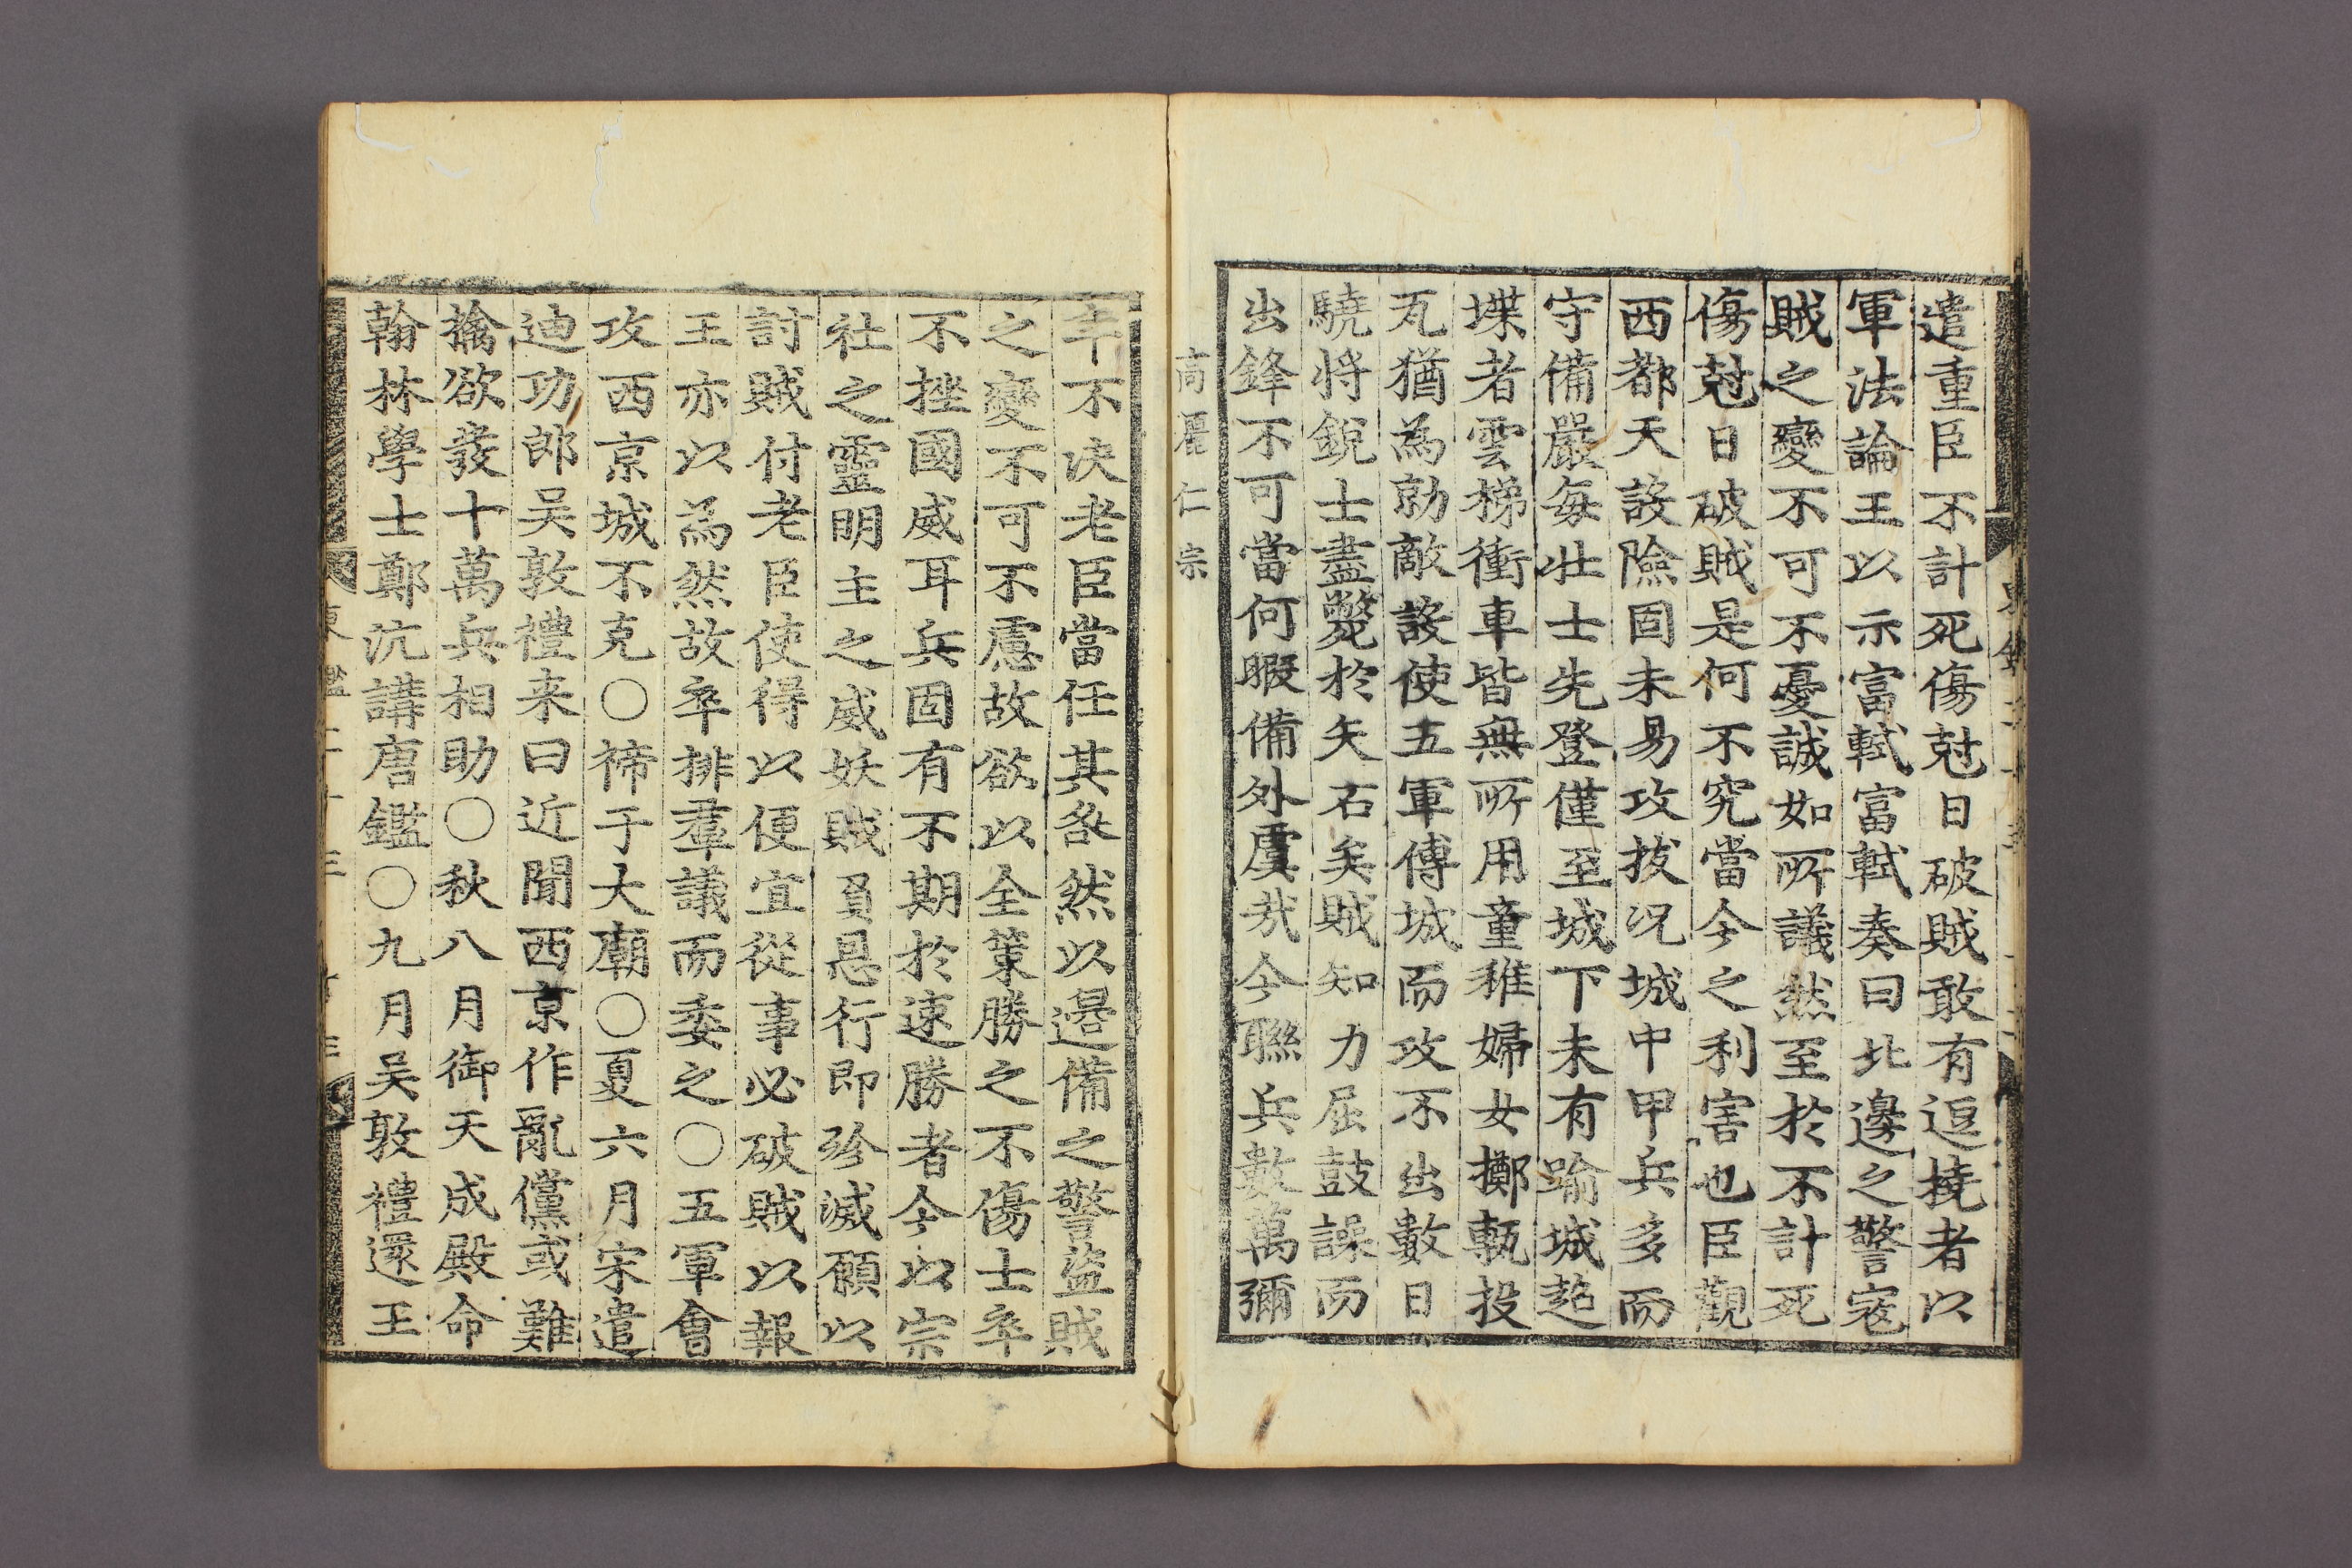 遣重臣不計死傷尅日破賊敢有逗撓者以
軍法論王以示富軾富軾奏曰北邊之警寇
賊之變不可不憂誠如所議然至於不計死
傷尅日破賊是何不究當今之利害也臣觀
西都天設險固未易攻拔况城中甲兵多而
守備嚴每壯士先登僅至城下未有踰城超
堞者雲梯衝車皆無所用童稚婦女擲甎投
瓦猶為勍敵設使五軍傅城而攻不出數日
驍將銳士盡斃於矢石矣賊知力屈鼓譟而
出鋒不可當何暇備外虞哉今聯兵數萬彌
高麗仁宗
年不決老臣當任其咎然以邊備之警盜賊
之變不可不慮故欲以全策勝之不傷士卒
不挫國威耳兵固有不期於速勝者今以宗
社之靈明主之威妖賊負恩行即殄滅願以
討賊付老臣使得以便宜從事必破賊以報
王亦以為然故卒排羣議而委之〇五軍會
攻西京城不克〇禘于大廟〇夏六月宋遣
迪功郎吳敦禮来曰近聞西京作亂儻或難
擒欲發十萬兵相助〇秋八月御天成殿命
翰林學士鄭沆講唐鑑〇九月吴敦禮還王